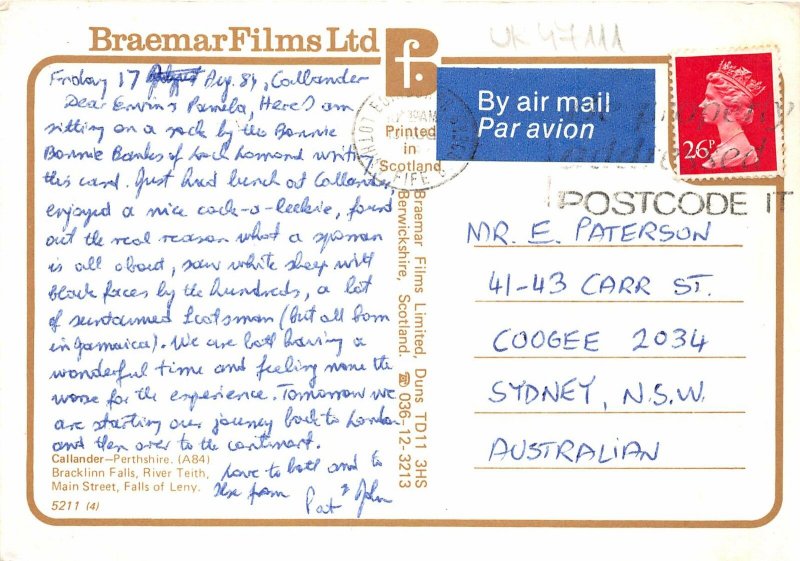 Braemar Films Ltd
Bf.
UK 47111
Friday 17 Aug. 84, Callander
Dear Erwin & Pamela, Here I am
sitting on a rock by the Bonnie
Bonnie Banks of Loch Lomond writing
this card. Just had lunch at Callander,
enjoyed a nice cock-a-leekie, found
out the real reason what a sporran
is all about, saw white sheep with
black faces by the hundreds, a lot
of suntanned Scotsman (but all born
in Jamaica). We are both having a
wonderful time and feeling none the
worse for the experience. Tomorrow we
are starting our journey back to London
and then over to the continent.
Love to both and to
from
Pat & John
Callander—Perthshire. (A84)
Bracklinn Falls, River Teith,
Main Street, Falls of Leny.
5211 (4)
Printed
in
Scotland
Braemar Films Limited, Duns TD11 3HS
Berwickshire, Scotland. ☎ 036-12-3213
By air mail
Par avion
26P
FIFE
POSTCODE IT
MR. E. PATERSON
41-43 CARR ST.
COOGEE 2034
SYDNEY, N.S.W.
AUSTRALIAN